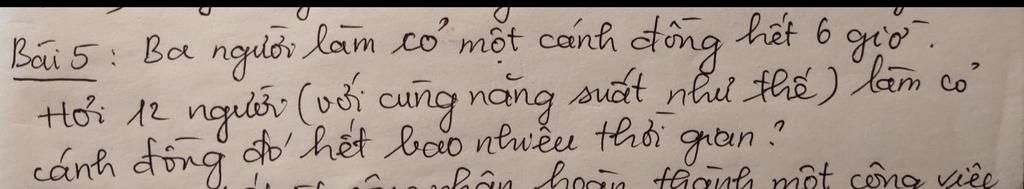 Bài 5 : Ba người làm cỏ một cánh đồng hết 6 giờ.
Hỏi 12 người (với cùng năng suất như thế) làm cỏ
cánh đồng đó hết bao nhiêu thời gian?
hoàn thành một công việc